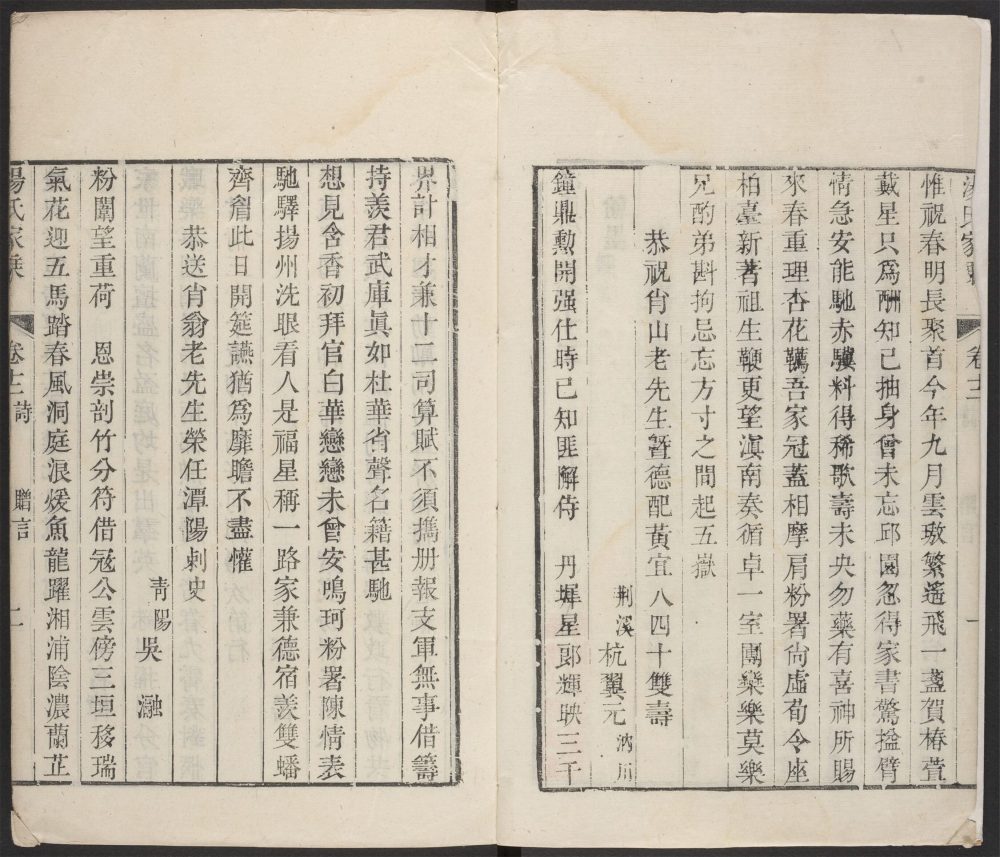 湯氏家乘 卷十二 一
惟祝春明長聚首今年九月雲璈繁遙飛一盞賀椿萱
戴星只為酬知己抽身曾未忘邱園忽得家書驚搤臂
情急安能馳赤驥料得稀歌壽未央勿藥有喜神所賜
來春重理杏花韉吾家冠蓋相摩肩粉署尙虛荀令座
柏臺新著祖生鞭更望滇南奏循卓一室團欒樂莫樂
兄酌弟斟拘忌忘方寸之間起五嶽
恭祝肖山老先生暨德配黃宜人四十雙壽
荆溪 杭翼元 汭川
鐘鼎勳開强仕時已知匪解侍 丹墀星郞輝映三千
界計相才兼十二司算賦不須擕册報支軍無事借籌
持羨君武庫眞如杜華省聲名籍甚馳
想見含香初拜官白華戀戀未曾安鳴珂粉署陳情表
馳驛揚州洗眼看人是福星稱一路家兼德宿羨雙蟠
齊眉此日開筵讌猶為靡瞻不盡懽
恭送肖翁老先生榮任潭陽刺史
靑陽 吳 瀜
粉闈望重荷 恩崇剖竹分符借冦公雲傍三垣移瑞
氣花迎五馬踏春風洞庭浪煖魚龍躍湘浦陰濃蘭芷
湯氏家乘 卷十二 詩 贈言 二